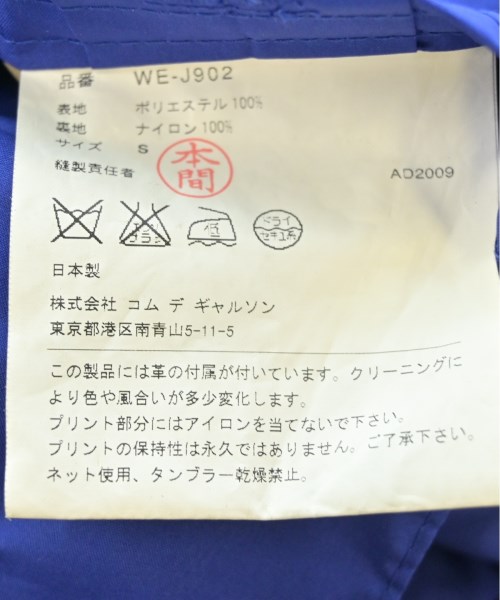 品番 WE-J902
表地 ポリエステル100%
裏地 ナイロン100%
サイズ S
縫製責任者 本間 AD2009
エンソ サラシ 低 ドライ セキユ系
日本製
株式会社 コム デ ギャルソン
東京都港区南青山5-11-5
この製品には革の付属が付いています。クリーニングに
より色や風合いが多少変化します。
プリント部分にはアイロンを当てないで下さい。
プリントの保持性は永久ではありません。ご了承下さい。
ネット使用、タンブラー乾燥禁止。